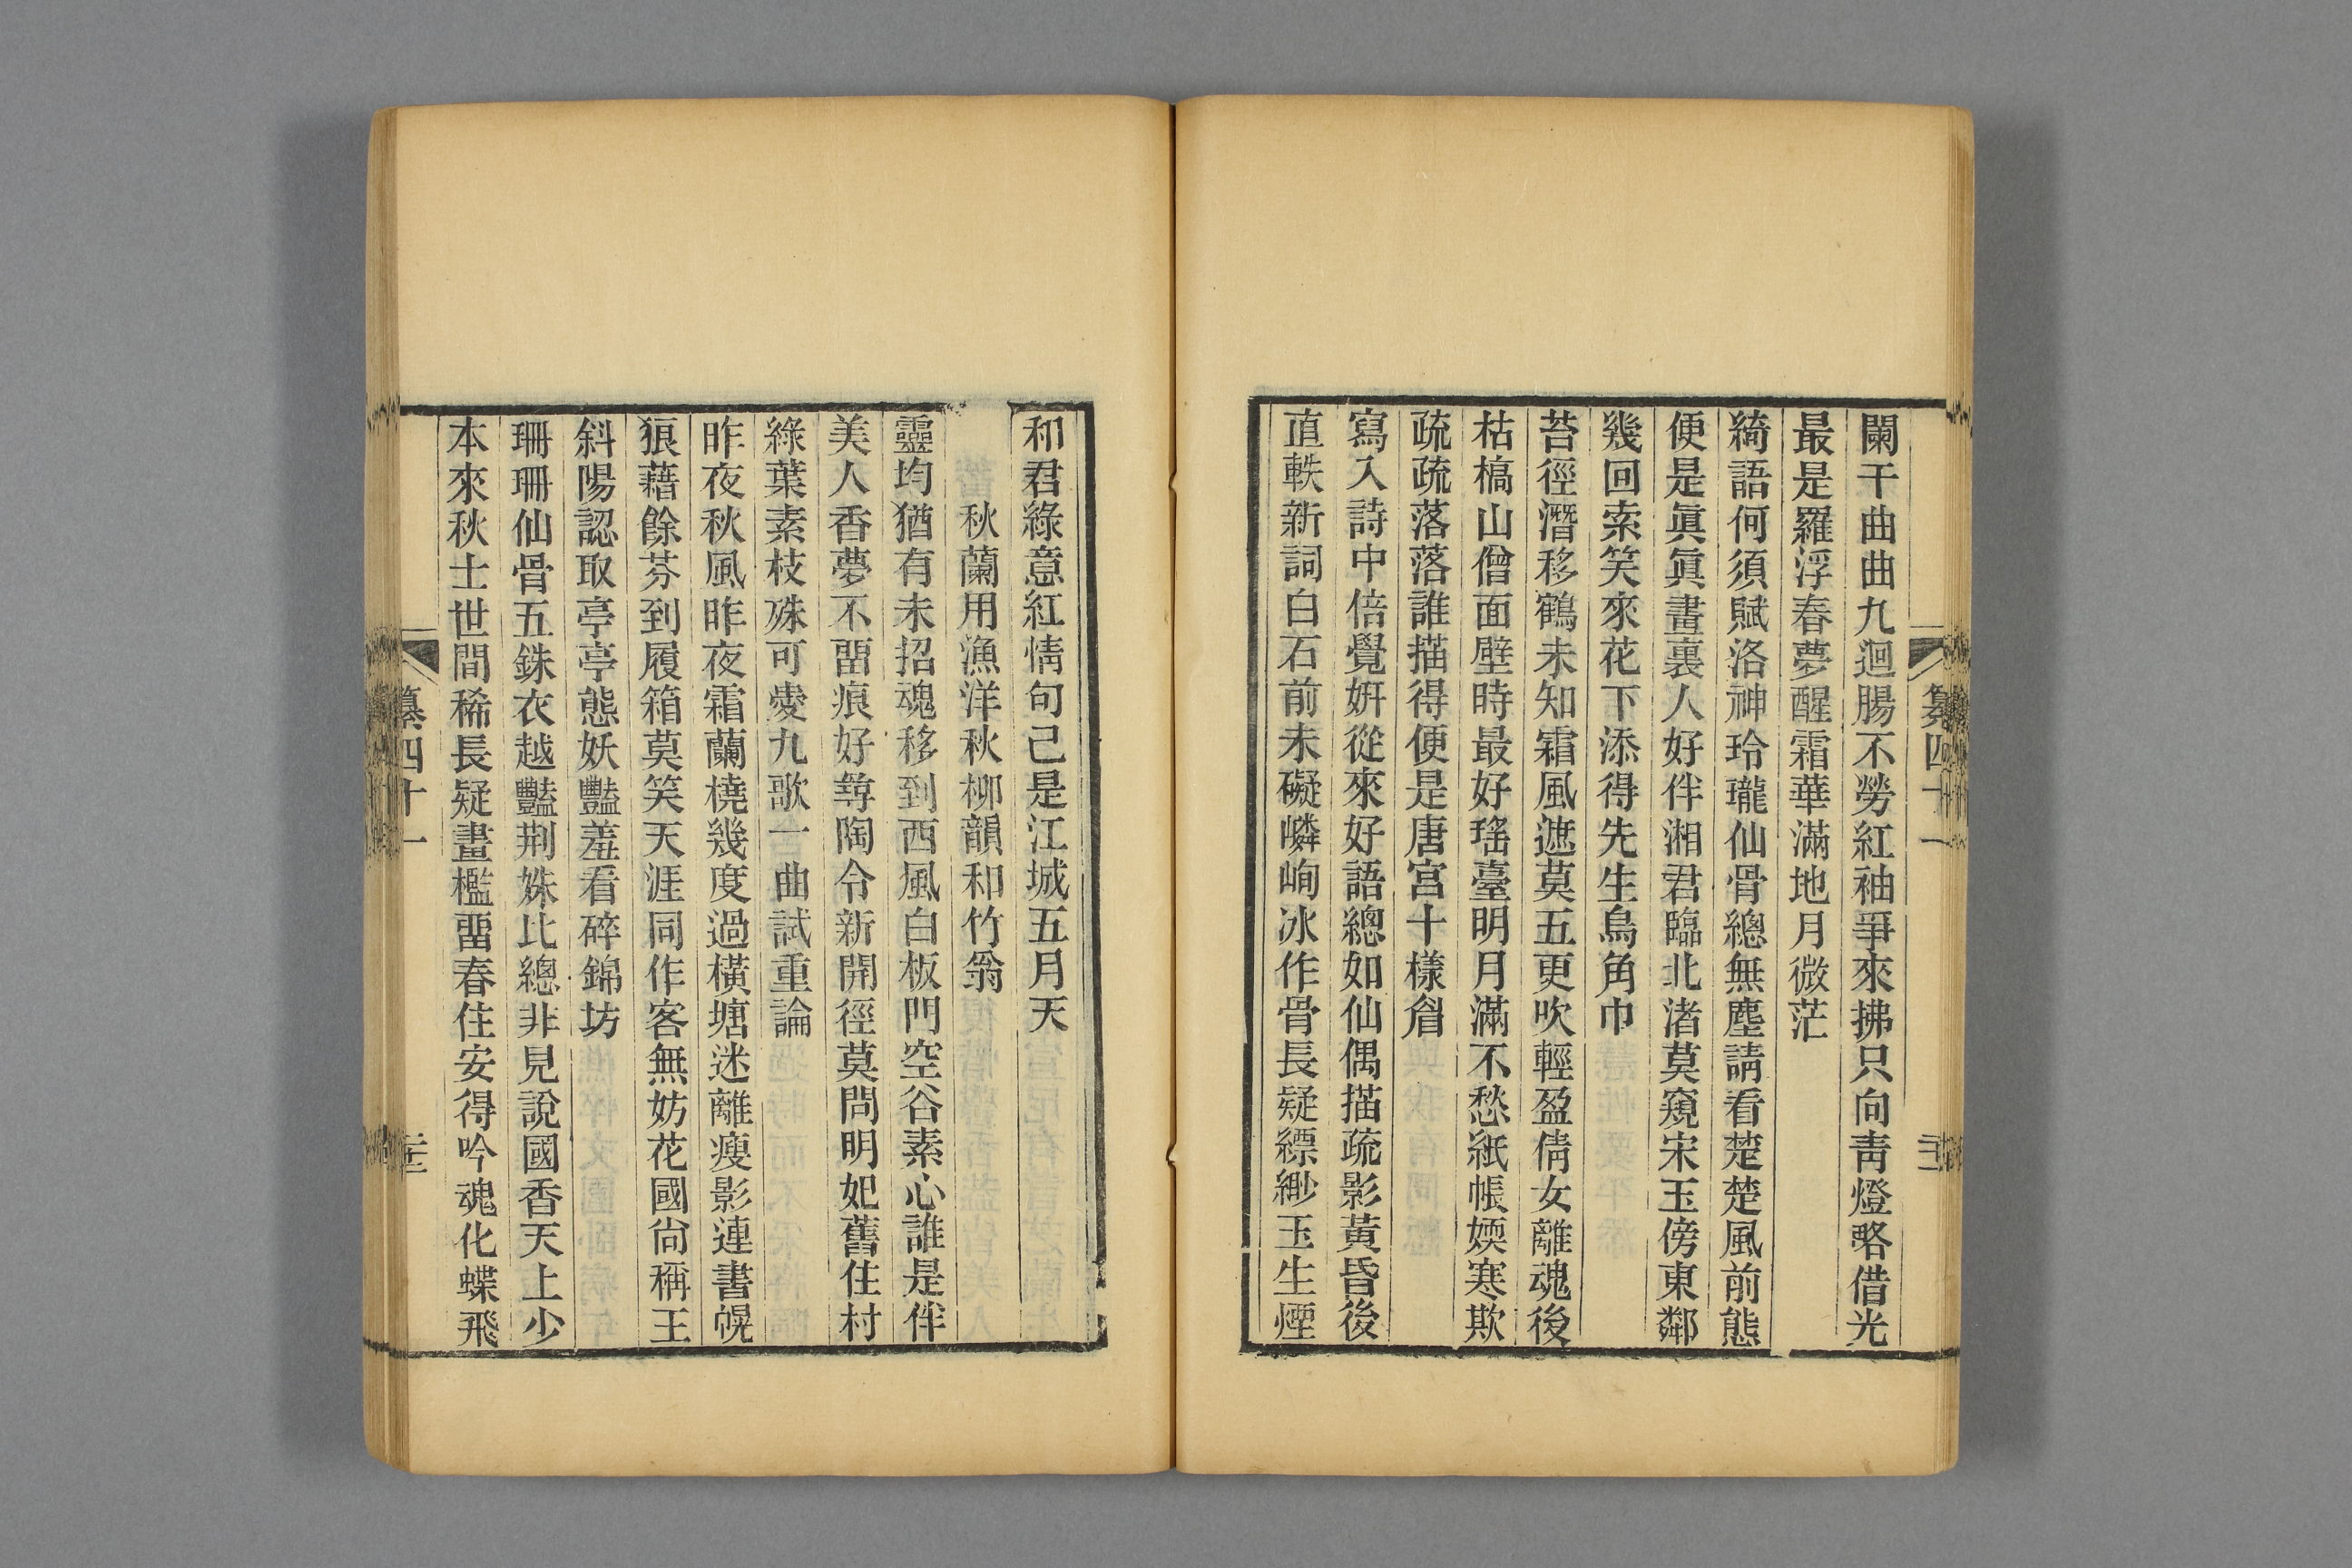 闌干曲曲九迴腸不勞紅袖爭來拂只向靑燈略借光
最是羅浮春夢醒霜華滿地月微茫
綺語何須賦洛神玲瓏仙骨總無塵請看楚楚風前態
便是眞眞畫裏人好伴湘君臨北渚莫窺宋玉傍東鄰
幾回索笑來花下添得先生烏角巾
苔徑潛移鶴未知霜風遮莫五更吹輕盈倩女離魂後
枯槁山僧面壁時最好瑤臺明月滿不愁紙帳煗寒欺
疏疏落落誰描得便是唐宮十樣眉
寫入詩中倍覺姸從來好語總如仙偶描疏影黃昏後
直軼新詞白石前未礙嶙峋冰作骨長疑縹緲玉生煙
和君綠意紅情句已是江城五月天
秋蘭用漁洋秋柳韻和竹翁
靈均猶有未招魂移到西風白板門空谷素心誰是伴
美人香夢不畱痕好尋陶令新開徑莫問明妃舊住村
綠葉素枝殊可愛九歌一曲試重論
昨夜秋風昨夜霜蘭橈幾度過橫塘迷離瘦影連書幌
狼藉餘芬到履箱莫笑天涯同作客無妨花國尙稱王
斜陽認取亭亭態妖豔羞看碎錦坊
珊珊仙骨五銖衣越豔荆姝比總非見說國香天上少
本來秋士世間稀長疑畫檻畱春住安得吟魂化蝶飛
纂四十一